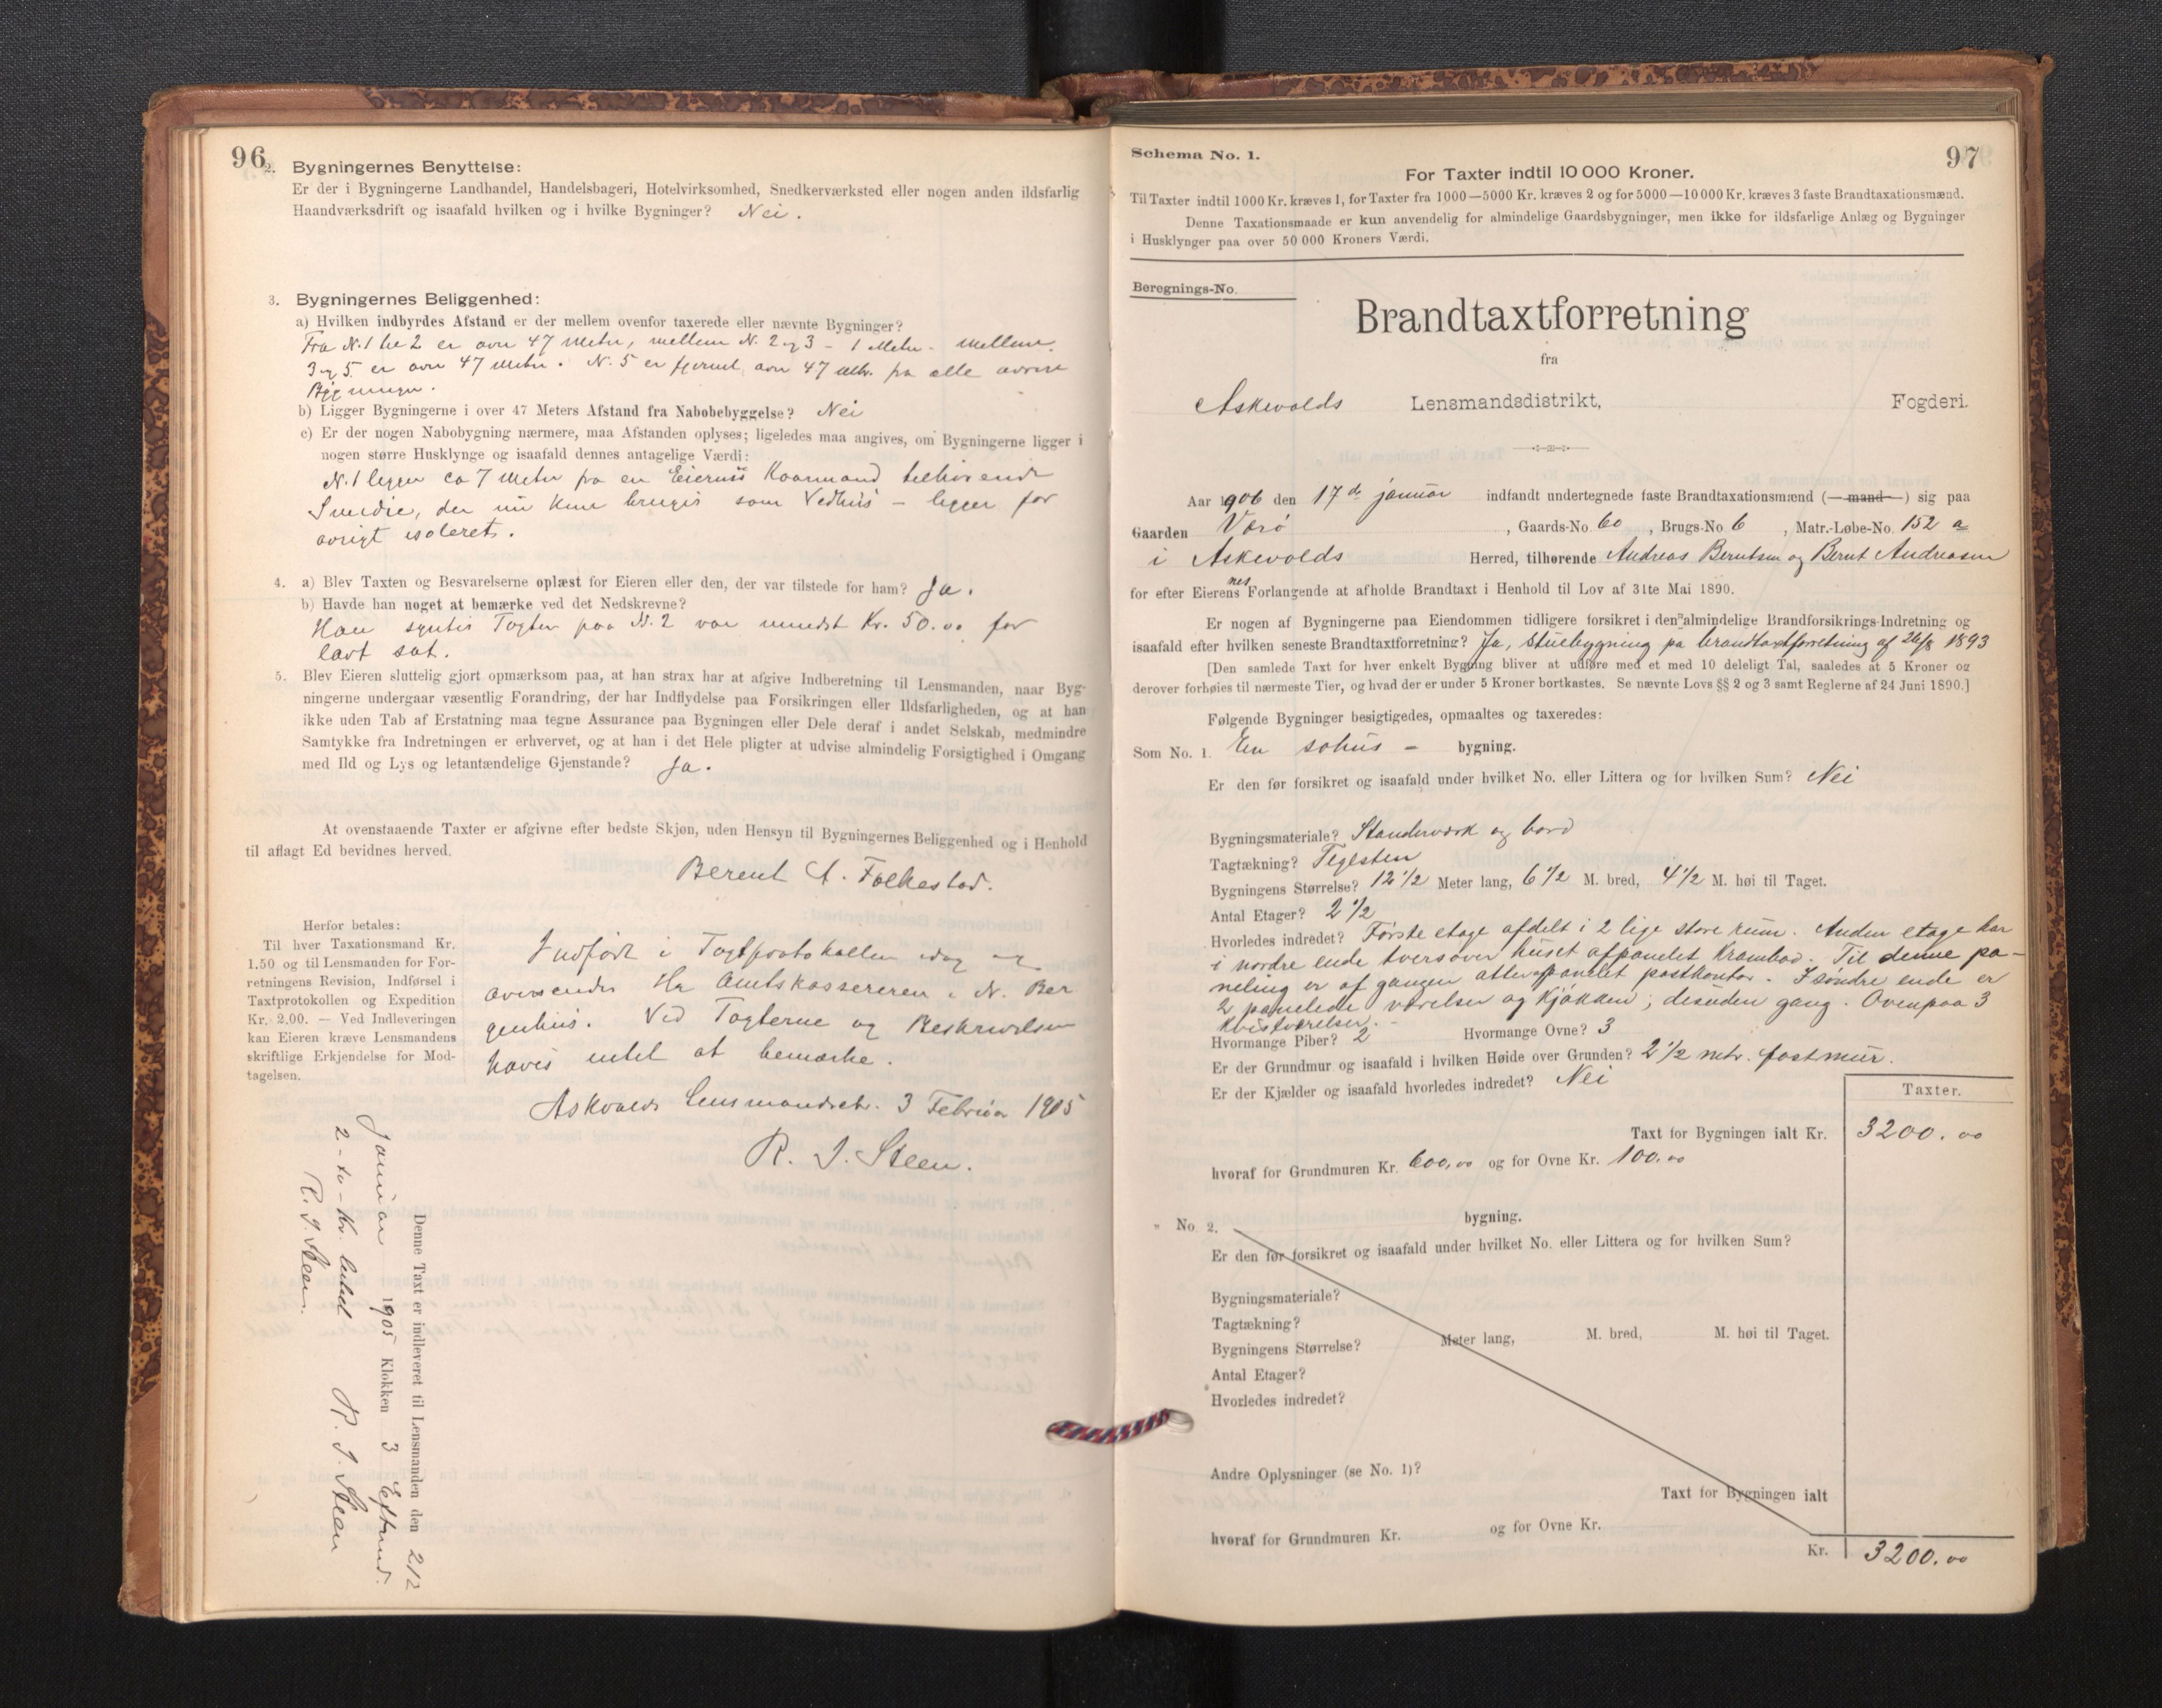 96
2. Bygningernes Benyttelse:
Er der i Bygningerne Landhandel, Handelsbageri, Hotelvirksomhed, Snedkerværksted eller nogen anden ildsfarlig
Haandværksdrift og isaafald hvilken og i hvilke Bygninger? Nei.
3. Bygningernes Beliggenhed:
a) Hvilken indbyrdes Afstand er der mellem ovenfor taxerede eller nævnte Bygninger?
Fra N. 1 til 2 er over 47 Meter, mellem N. 2 og 3 - 1 Meter - mellem
3 og 5 er over 47 Meter. N. 5 er fjernet over 47 Mtr. fra alle øvrige
Bygninger.
b) Ligger Bygningerne i over 47 Meters Afstand fra Nabobebyggelse? Nei
c) Er der nogen Nabobygning nærmere, maa Afstanden oplyses; ligeledes maa angives, om Bygningerne ligger i
nogen større Husklynge og isaafald dennes antagelige Værdi:
N. 1 ligger ca 7 Meter fra en Kaarmand tilhørende
Smidie, der nu kun bruges som Vedhus - ligger for
øvrigt isoleret.
4. a) Blev Taxten og Besvarelserne oplæst for Eieren eller den, der var tilstede for ham? Ja.
b) Havde han noget at bemærke ved det Nedskrevne?
Han syntes Taxten paa N. 2 var mindst Kr. 50.00 for
lavt sat.
5. Blev Eieren sluttelig gjort opmærksom paa, at han strax har at afgive Indberetning til Lensmanden, naar Byg-
ningerne undergaar væsentlig Forandring, der har Indflydelse paa Forsikringen eller Ildsfarligheden, og at han
ikke uden Tab af Erstatning maa tegne Assurance paa Bygningen eller Dele deraf i andet Selskab, medmindre
Samtykke fra Indretningen er erhvervet, og at han i det Hele pligter at udvise almindelig Forsigtighed i Omgang
med Ild og Lys og letantændelige Gjenstande? Ja.
At ovenstaaende Taxter er afgivne efter bedste Skjøn, uden Hensyn til Bygningernes Beliggenhed og i Henhold
til aflagt Ed bevidnes herved.
Berent A. Folkestad.
Herfor betales:
Til hver Taxationsmand Kr.
1.50 og til Lensmanden for For-
retningens Revision, Indførsel i
Taxtprotokollen og Expedition
Kr. 2.00. — Ved Indleveringen
kan Eieren kræve Lensmandens
skriftlige Erkjendelse for Mod-
tagelsen.
Indført i Taxtprotokollen idag og
oversendes Hr Amtskassereren i N. Ber
genhus. Ved Taxterne og Beskrivelsen
haves intet at bemærke.
Askvolds Lensmandsetr. 3 Februar 1905
R. J. Steen.
Denne Taxt er indleveret til Lensmanden den 2/2
Januar 1905 Klokken 3 Efterm.
2 - to - Kr. betalt R. J. Steen
R. J. Steen.
97
Schema No. 1.
For Taxter indtil 10 000 Kroner.
Til Taxter indtil 1000 Kr. kræves 1, for Taxter fra 1000—5000 Kr. kræves 2 og for 5000—10 000 Kr. kræves 3 faste Brandtaxationsmænd.
Denne Taxationsmaade er kun anvendelig for almindelige Gaardsbygninger, men ikke for ildsfarlige Anlæg og Bygninger
i Husklynger paa over 50 000 Kroners Værdi.
Beregnings-No.
Brandtaxtforretning
fra
Askevolds Lensmandsdistrikt, Fogderi.
Aar 1906 den 17de januar indfandt undertegnede faste Brandtaxationsmænd (—mand—) sig paa
Gaarden Værø, Gaards-No. 60, Brugs-No 6, Matr.-Løbe-No. 152 a
i Askevolds Herred, tilhørende Andreas Berntsen og Bernt Andreasen
for efter Eierens nes Forlangende at afholde Brandtaxt i Henhold til Lov af 31te Mai 1890.
Er nogen af Bygningerne paa Eiendommen tidligere forsikret i den almindelige Brandforsikrings-Indretning og
isaafald efter hvilken seneste Brandtaxtforretning? Ja, stuebygning på brandtaxtforretning af 26/8 1893
[Den samlede Taxt for hver enkelt Bygning bliver at udføre med et med 10 deleligt Tal, saaledes at 5 Kroner og
derover forhøies til nærmeste Tier, og hvad der er under 5 Kroner bortkastes. Se nævnte Lovs §§ 2 og 3 samt Reglerne af 24 Juni 1890.]
Følgende Bygninger besigtigedes, opmaaltes og taxeredes:
Som No. 1. En søhus - bygning.
Er den før forsikret og isaafald under hvilket No. eller Littera og for hvilken Sum? Nei
Bygningsmateriale? Standerværk og bord
Tagtækning? Teglsten
Bygningens Størrelse? 12 1/2 Meter lang, 6 1/2 M. bred, 4 1/2 M. høi til Taget.
Antal Etager? 2 1/2
Hvorledes indredet? Første etage afdelt i 2 lige store rum. Anden etage har
i nordre ende tversover huset afpanelet Krambod. Til denne pa-
neling er af gangen atter afpanelet postkontor. I søndre ende er
2 panelede værelser og Kjøkken; desuden gang. Ovenpaa 3
Kvistværelser.
Hvormange Piber? 2 Hvormange Ovne? 3
Er der Grundmur og isaafald i hvilken Høide over Grunden? 2 1/2 metr. fastmur.
Er der Kjælder og isaafald hvorledes indredet? Nei
Taxter.
Taxt for Bygningen ialt Kr. 3200.00
hvoraf for Grundmuren Kr. 600,00 og for Ovne Kr. 100.00
" No 2. bygning.
Er den før forsikret og isaafald under hvilket No. eller Littera og for hvilken Sum?
Bygningsmateriale?
Tagtækning?
Bygningens Størrelse? Meter lang, M. bred, M. høi til Taget.
Antal Etager?
Hvorledes indredet?
Andre Oplysninger (se No. 1)?
Taxt for Bygningen ialt
hvoraf for Grundmuren Kr. og for Ovne Kr.
Kr. 3200.00